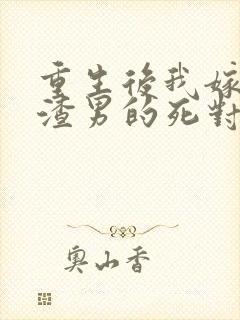 重生後我嫁
渣男的死對
奧山香